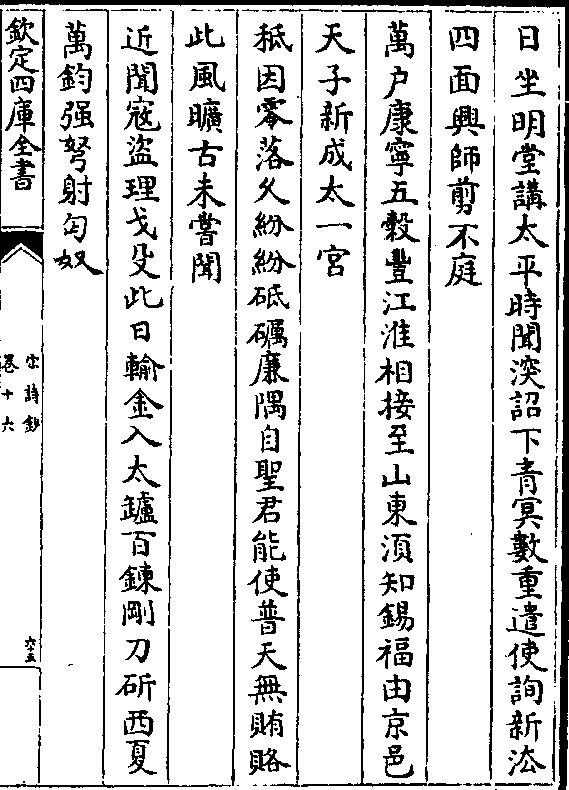 日坐明堂講太平時聞渙詔下青冥數重遣使詢新法
四面興師剪不庭
萬户康寧五穀豐江淮相接至山東須知錫福由京邑
天子新成太一宮
秪因零落久紛紛砥礪廉隅自聖君能使普天無賄賂
此風曠古未嘗聞
近聞冦盜理戈殳此日輸金入太鑪百鍊剛刀斫西夏
萬鈞强弩射匈奴
欽定四庫全書
宋詩鈔
卷十六
六十五